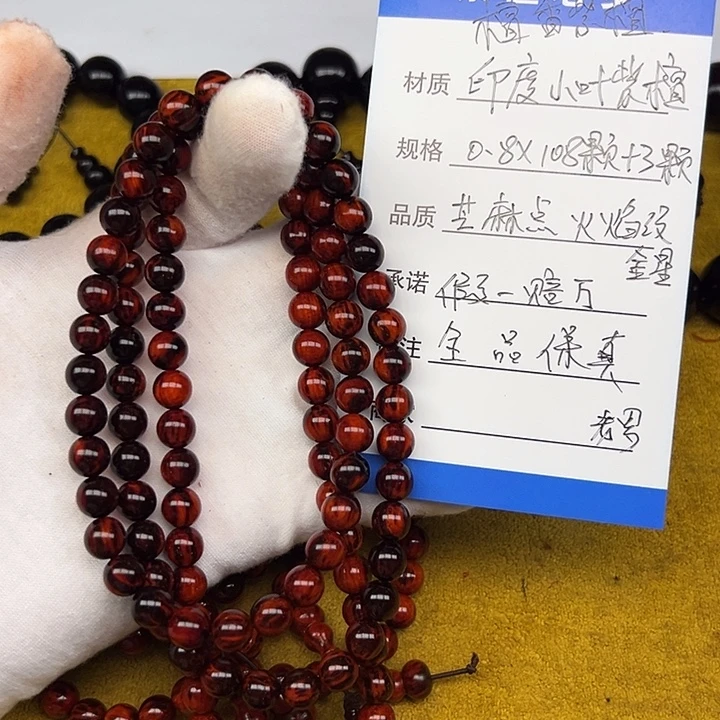 材质 印度小叶紫檀
规格 0.8X108颗+3颗
品质 芝麻点 火焰纹
金星
承诺 假一赔万
注 全品保真
老男